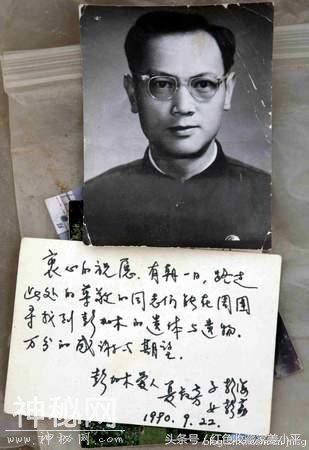 衷心的祝愿，有朝一日，路过
此处的尊敬的同志们能在周围
寻找到彭加木的遗体与遗物。
万分的感谢与期望。
彭加木爱人 夏叔芳 子 彭海
女 彭荔
1990.9.22.
神秘网
www.shenmi
头条号/红色收藏家姜小平
blog.